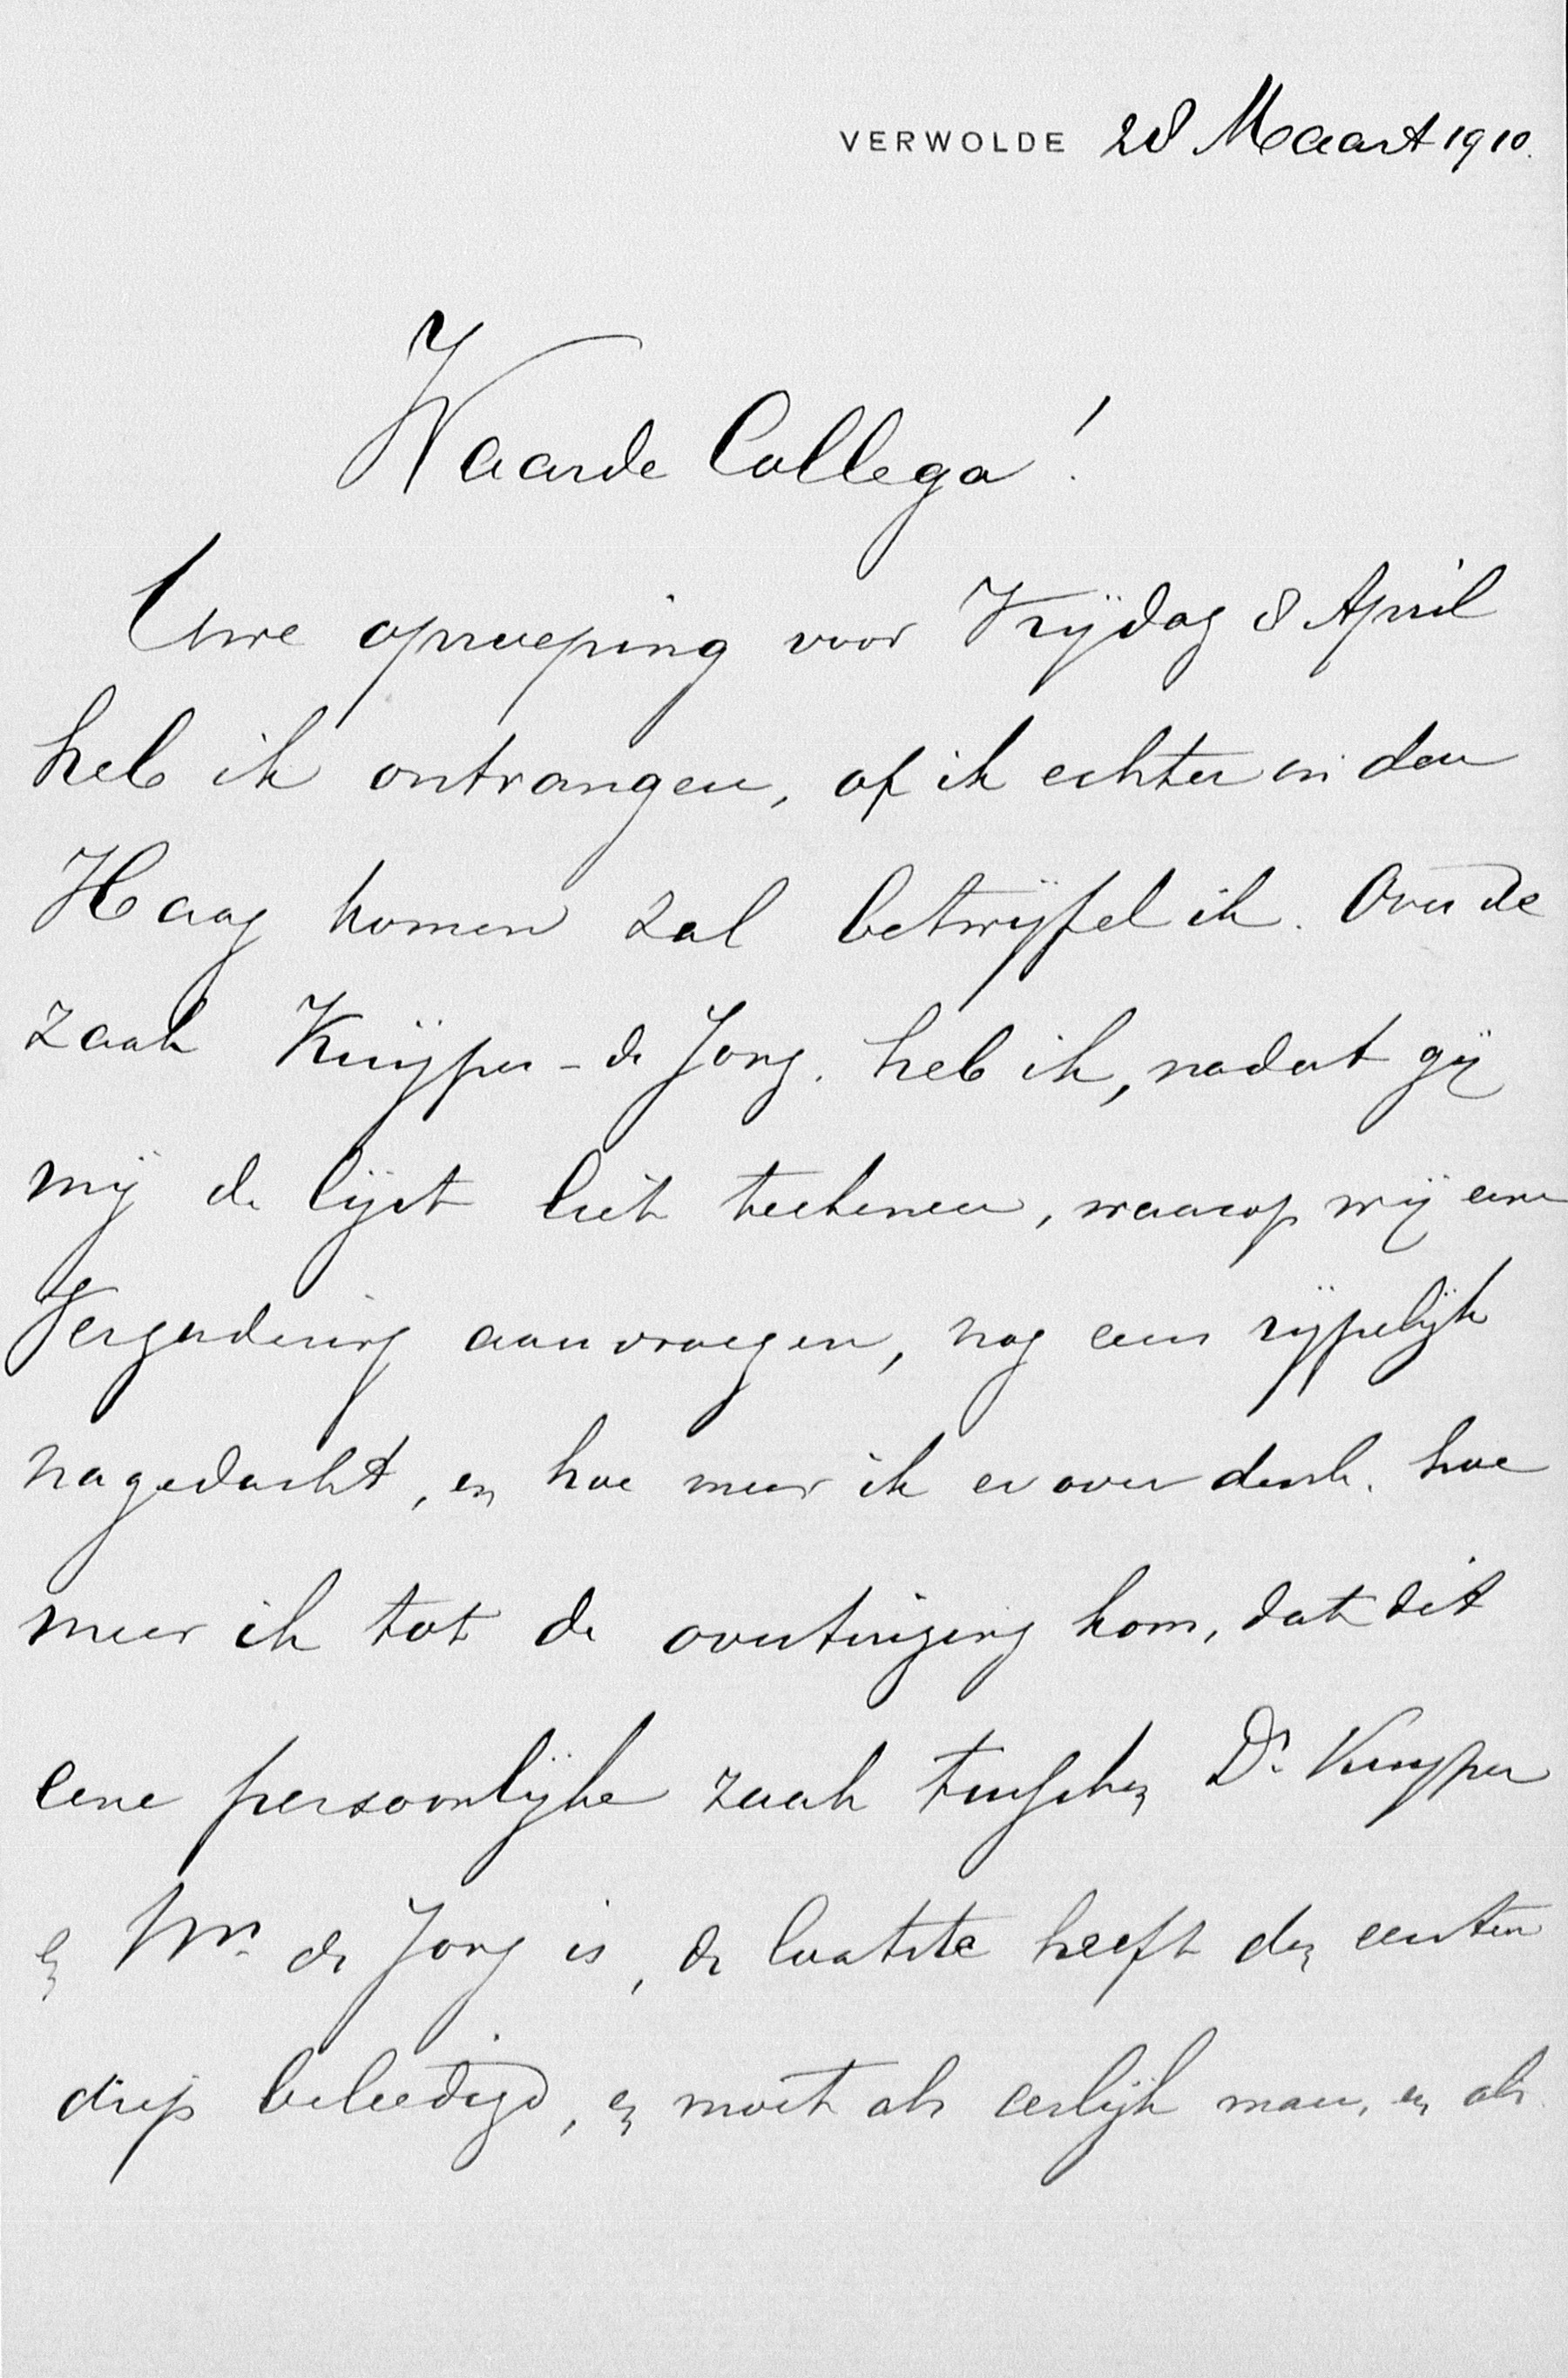 VERWOLDE 28 Maart 1910.
Waarde Collega!
Uwe oproeping voor Vrijdag 8 April
heb ik ontvangen, of ik echter in den
Haag komen zal betwijfel ik. Over de
zaak Kuijper - de Jong. heb ik, nadat gij
mij de lijst liet teekenen, waarop wij eene
Vergadering aanvroegen, nog eens rijpelijk
nagedacht, en hoe meer ik er over denk. hoe
meer ik tot de overtuiging kom, dat dit
eene persoonlijke zaak tusschen Dr. Kuyper
en Mr. de Jong is, de laatste heeft den eersten
diep beleedigd, en moet als eerlijk man, en als